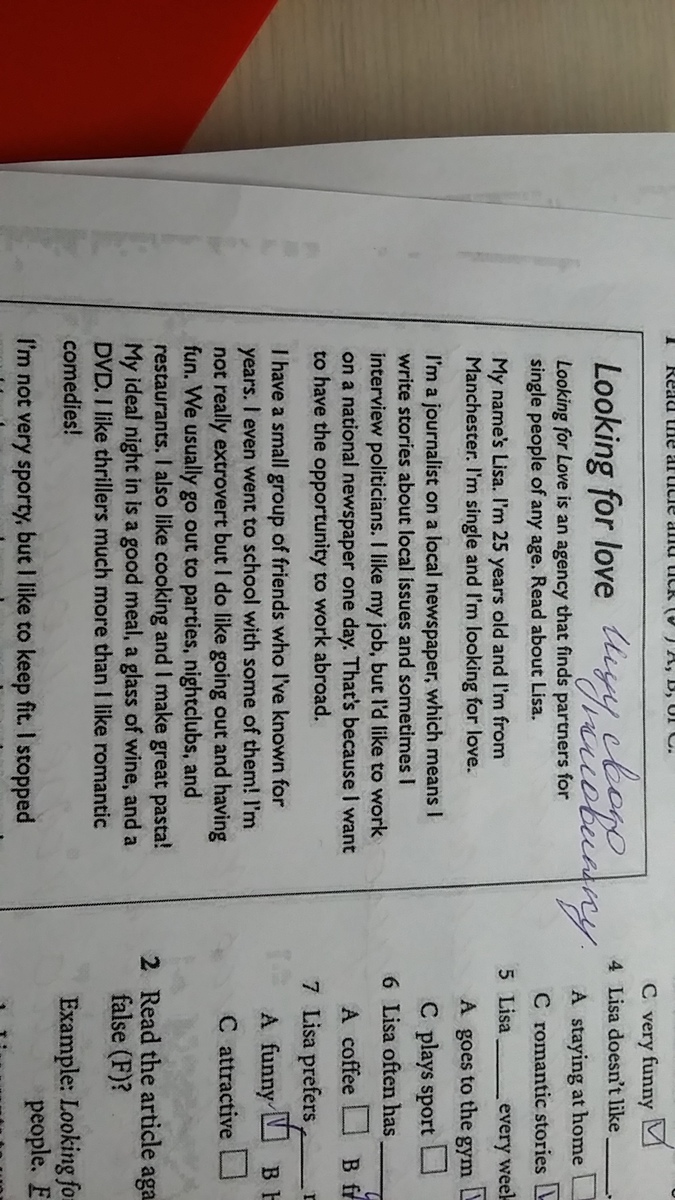 1 Read the article and tick (✓) A, B, or C.
Looking for love Ищу свою половинку.
Looking for Love is an agency that finds partners for
single people of any age. Read about Lisa.
My name's Lisa. I'm 25 years old and I'm from
Manchester. I'm single and I'm looking for love.
I'm a journalist on a local newspaper, which means I
write stories about local issues and sometimes I
interview politicians. I like my job, but I'd like to work
on a national newspaper one day. That's because I want
to have the opportunity to work abroad.
I have a small group of friends who I've known for
years. I even went to school with some of them! I'm
not really extrovert but I do like going out and having
fun. We usually go out to parties, nightclubs, and
restaurants. I also like cooking and I make great pasta!
My ideal night in is a good meal, a glass of wine, and a
DVD. I like thrillers much more than I like romantic
comedies!
I'm not very sporty, but I like to keep fit. I stopped
C very funny
4 Lisa doesn't like ____.
A staying at home
C romantic stories
5 Lisa ____ every week
A goes to the gym
C plays sport
6 Lisa often has ____
A coffee B fr
7 Lisa prefers ____
A funny B
C attractive
2 Read the article aga
false (F)?
Example: Looking fo
people. F